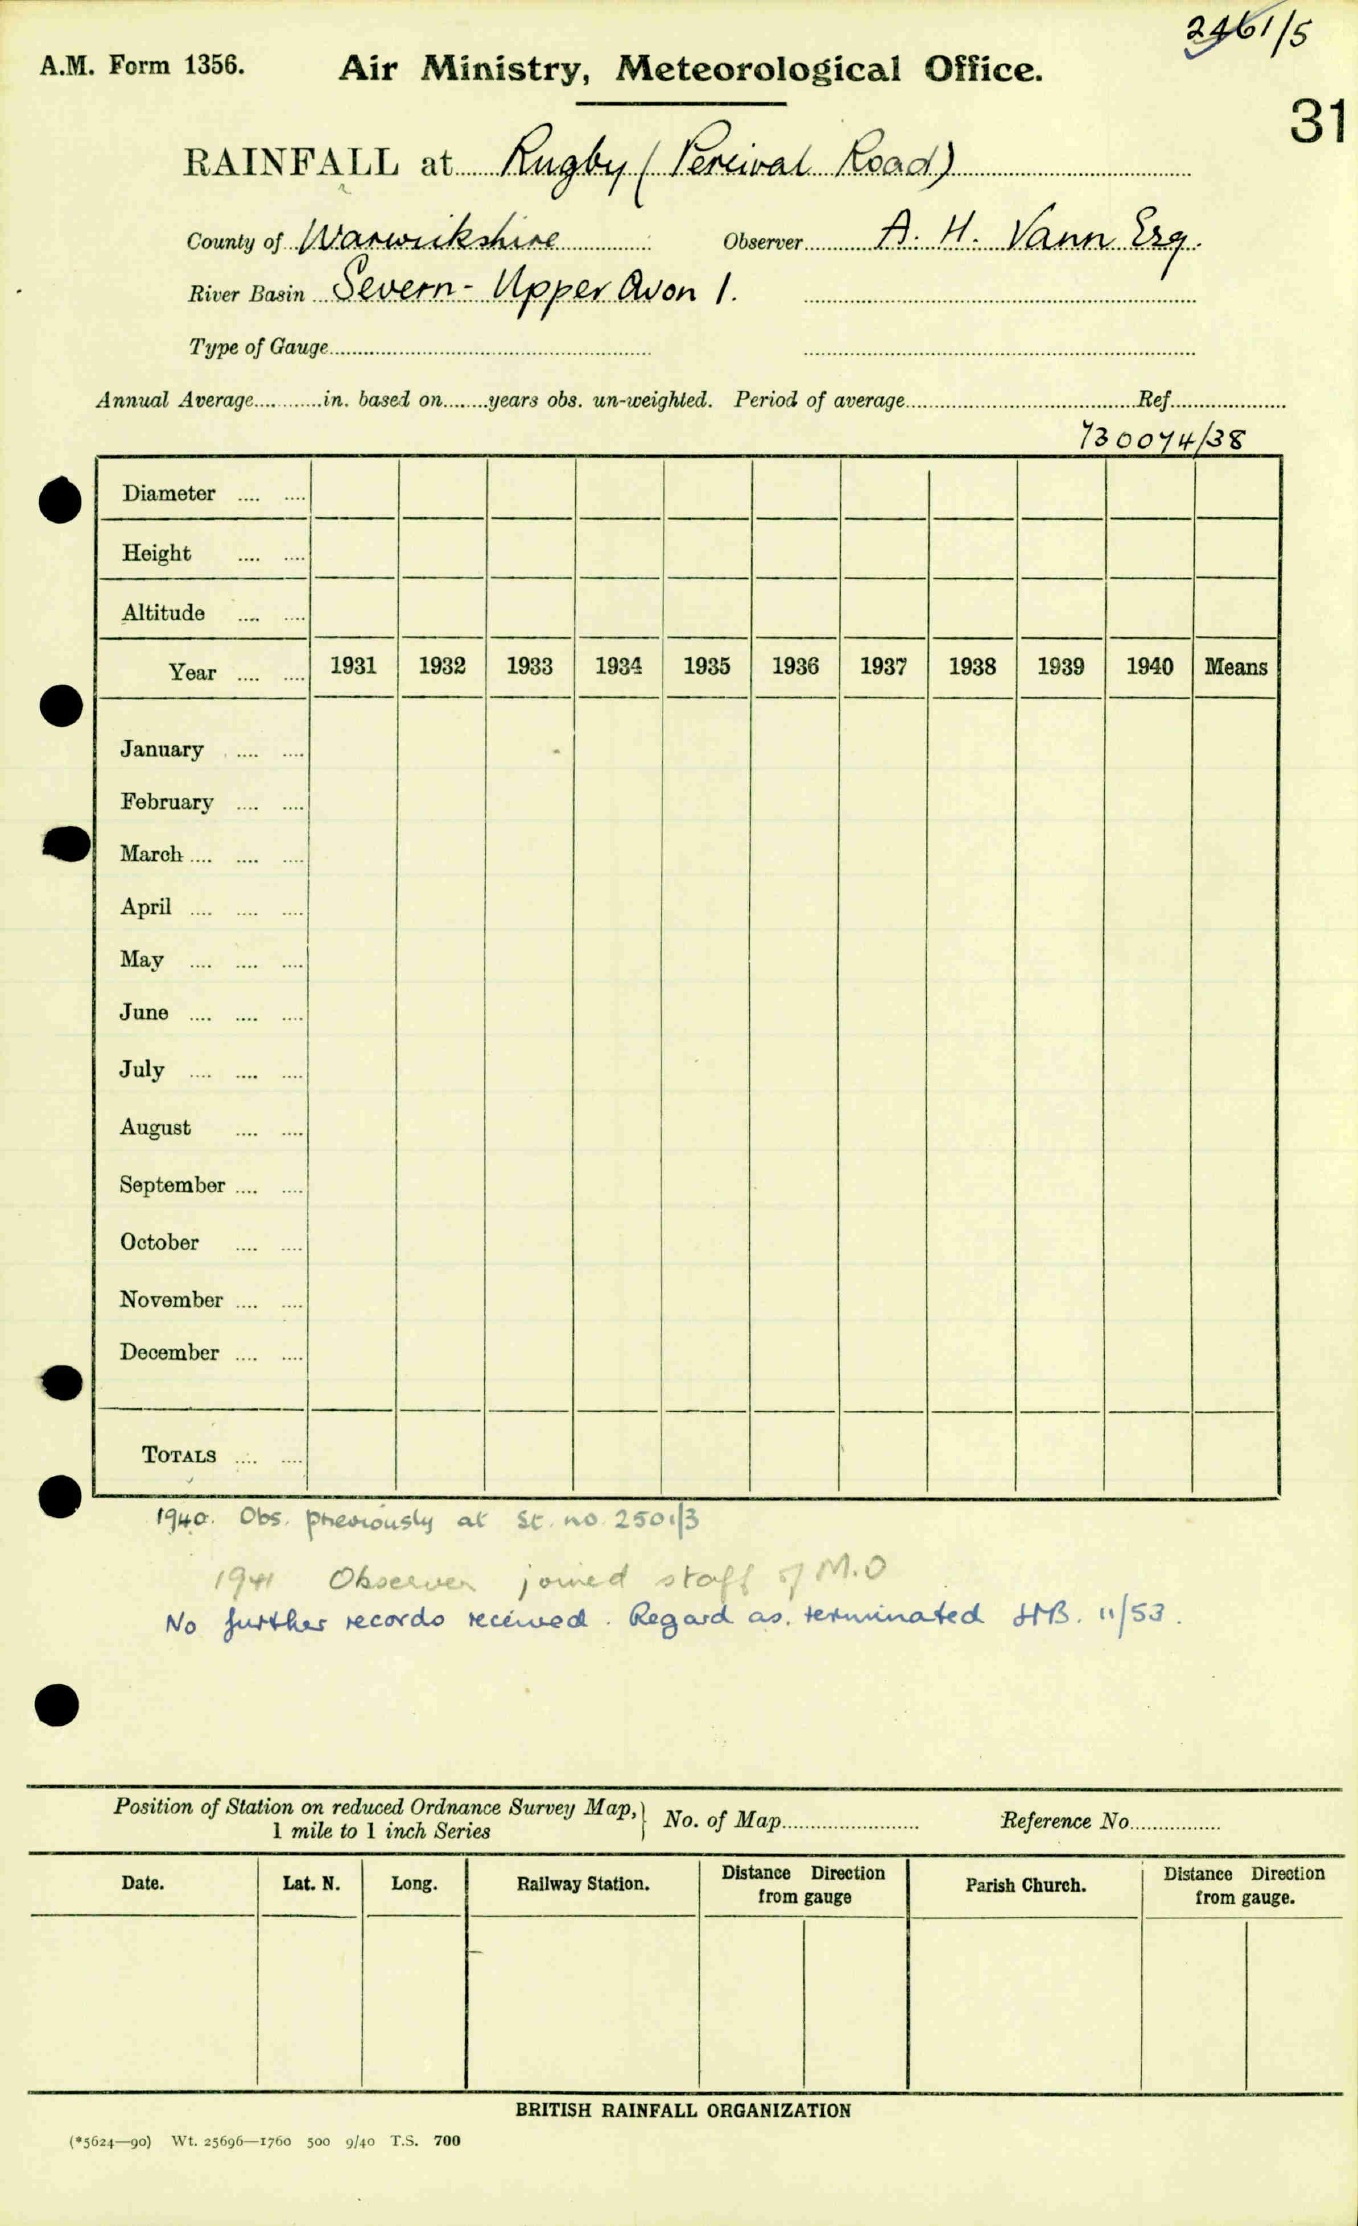 2461/5
A.M. Form 1356.
Air Ministry, Meteorological Office.
31
RAINFALL at Rugby (Percival Road)
County of Warwickshire Observer A. H. Vann Esq.
River Basin Severn - Upper Avon 1.
Type of Gauge
Annual Average in. based on years obs. un-weighted. Period of average Ref.
730074/38
Diameter
Height
Altitude
Year 1931 1932 1933 1934 1935 1936 1937 1938 1939 1940 Means
January
February
March
April
May
June
July
August
September
October
November
December
TOTALS
1940. Obs. previously at St. no. 2501/3
1941 Observer joined staff of M.O
No further records received. Regard as. terminated HB. 11/53.
Position of Station on reduced Ordnance Survey Map, } No. of Map Reference No.
1 mile to 1 inch Series
Date. Lat. N. Long. Railway Station. Distance Direction from gauge Parish Church. Distance Direction from gauge.
BRITISH RAINFALL ORGANIZATION
(*5624—90) Wt. 25696—1760 500 9/40 T.S. 700